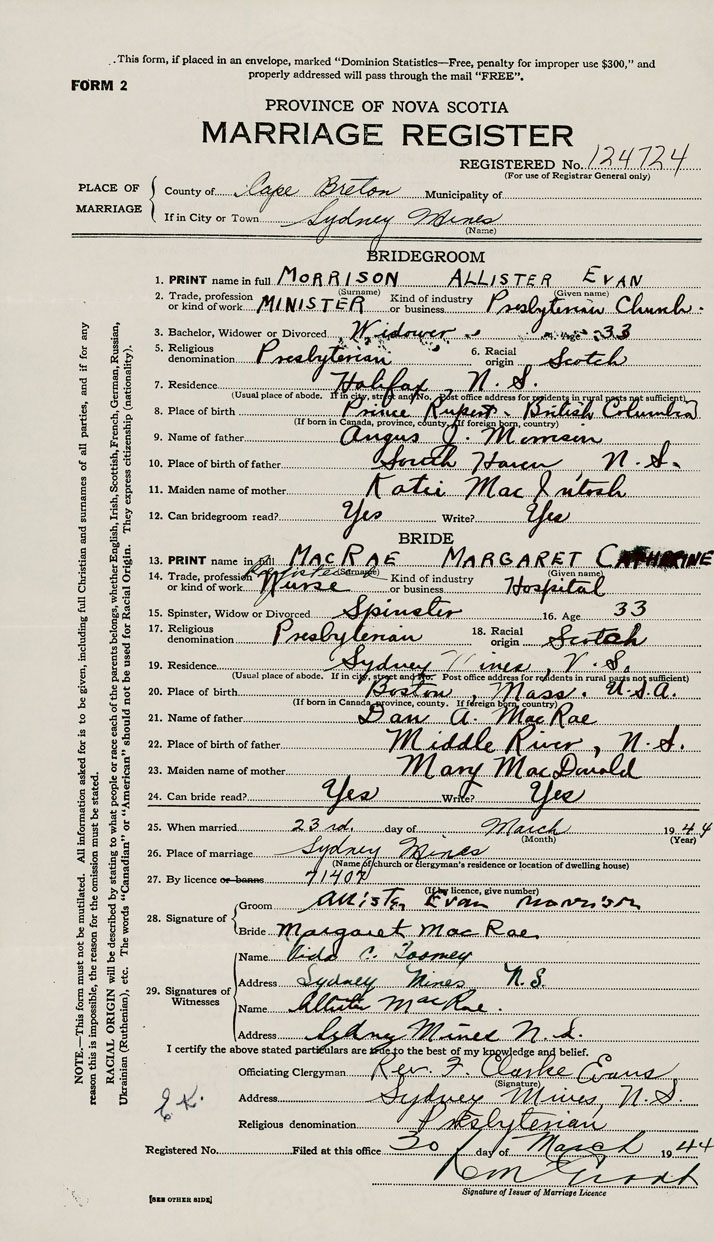 ..This form, if placed in an envelope, marked “Dominion Statistics—Free, penalty for improper use $300,” and
properly addressed will pass through the mail “FREE”.
FORM 2
PROVINCE OF NOVA SCOTIA
MARRIAGE REGISTER
REGISTERED No. 124724
(For use of Registrar General only)
PLACE OF MARRIAGE
County of Cape Breton Municipality of
If in City or Town Sydney Mines
(Name)
BRIDEGROOM
1. PRINT name in full MORRISON ALLISTER EVAN
(Surname) (Given name)
2. Trade, profession or kind of work MINISTER Kind of industry or business Presbyterian Church.
3. Bachelor, Widower or Divorced Widower Age 33
5. Religious denomination Presbyterian 6. Racial origin Scotch
7. Residence Halifax, N.S.
(Usual place of abode. If in city, street and No. Post office address for residents in rural parts not sufficient)
8. Place of birth Prince Rupert - British Columbia
(If born in Canada, province, county. If foreign born, country)
9. Name of father Angus J. Morrison
10. Place of birth of father South Haven N.S.
11. Maiden name of mother Katie MacIntosh
12. Can bridegroom read? Yes Write? Yes
BRIDE
13. PRINT name in full MACRAE MARGARET CATHERINE
(Surname) (Given name)
14. Trade, profession or kind of work Registered Nurse Kind of industry or business Hospital
15. Spinster, Widow or Divorced Spinster 16. Age 33
17. Religious denomination Presbyterian 18. Racial origin Scotch
19. Residence Sydney Mines, N.S.
(Usual place of abode. If in city, street and No. Post office address for residents in rural parts not sufficient)
20. Place of birth Boston, Mass. U.S.A.
(If born in Canada, province, county. If foreign born, country)
21. Name of father Dan A. MacRae
22. Place of birth of father Middle River, N.S.
23. Maiden name of mother Mary MacDonald
24. Can bride read? Yes Write? Yes
25. When married 23rd. day of March 1944
(Month) (Year)
26. Place of marriage Sydney Mines
(Name of church or clergyman's residence or location of dwelling house)
27. By licence or banns 71407
(If by licence, give number)
28. Signature of
Groom Allister Evan Morrison
Bride Margaret MacRae
29. Signatures of Witnesses
Name C. Toomey
Address Sydney Mines N.S.
Name Allister MacRae.
Address Sydney Mines N.S.
I certify the above stated particulars are true to the best of my knowledge and belief.
Officiating Clergyman Rev. F. Clarke Evans
(Signature)
Address Sydney Mines, N.S.
Religious denomination Presbyterian
Registered No. Filed at this office 30 day of March 1944
Signature of Issuer of Marriage Licence
[SEE OTHER SIDE]
NOTE.—This form must not be mutilated. All information asked for is to be given, including full Christian and surnames of all parties, and if for any
reason this is impossible, the reason for the omission must be stated.
RACIAL ORIGIN will be described by stating to what people or race each of the parents belongs, whether English, Irish, Scottish, French, German, Russian,
Ukrainian (Ruthenian), etc. The words “Canadian” or “American” should not be used for Racial Origin. They express citizenship (nationality).